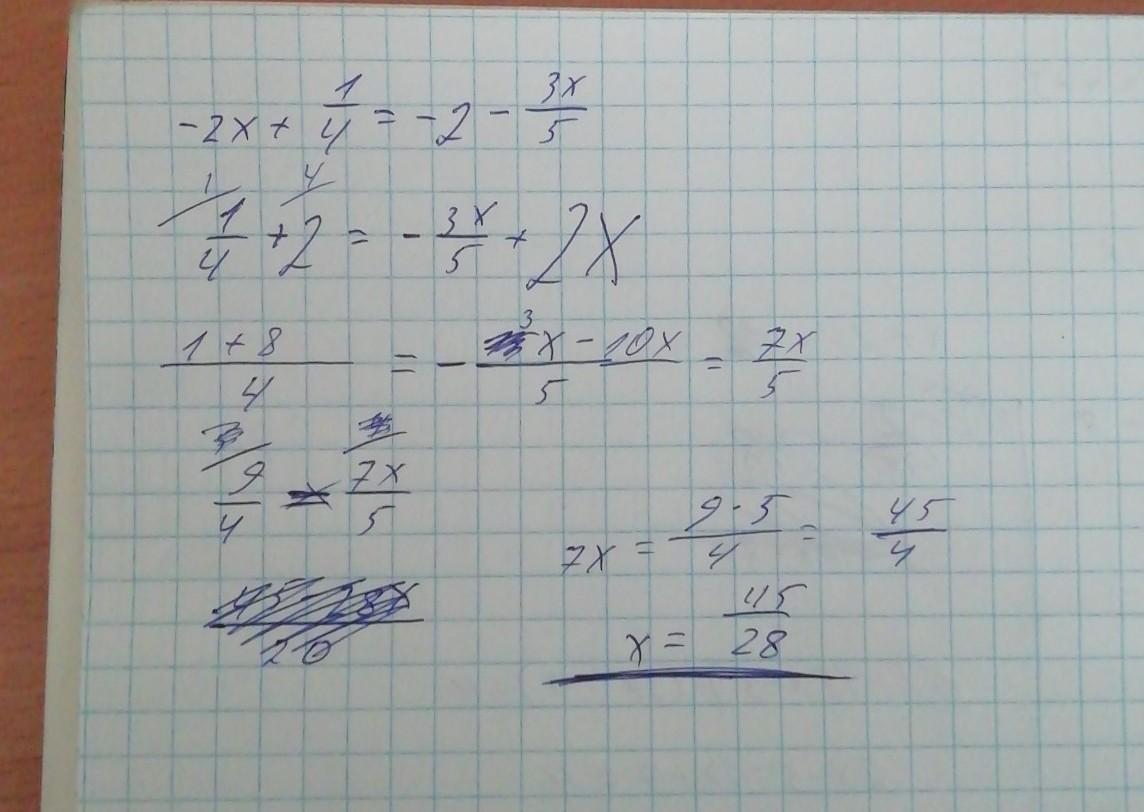 -2x + 1/4 = -2 - 3x/5
1 4
1/4 + 2 = - 3x/5 + 2x
(1 + 8)/4 = - (3x - 10x)/5 = 7x/5
9/4 = 7x/5
7x = (9 · 5)/4 = 45/4
x = 45/28